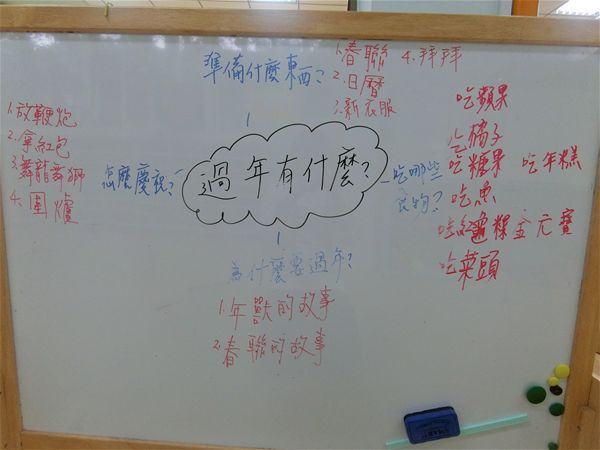 準備什麼東西?
1.春聯
2.日曆
3.新衣服
4.拜拜
1.放鞭炮
2.拿紅包
3.舞龍舞獅
4.圍爐
怎麼慶祝?
過年有什麼?
吃哪些
食物?
吃蘋果
吃橘子
吃糖果
吃年糕
吃魚
金元寶
吃菜頭
為什麼要過年?
1.年獸的故事
2.春聯的故事